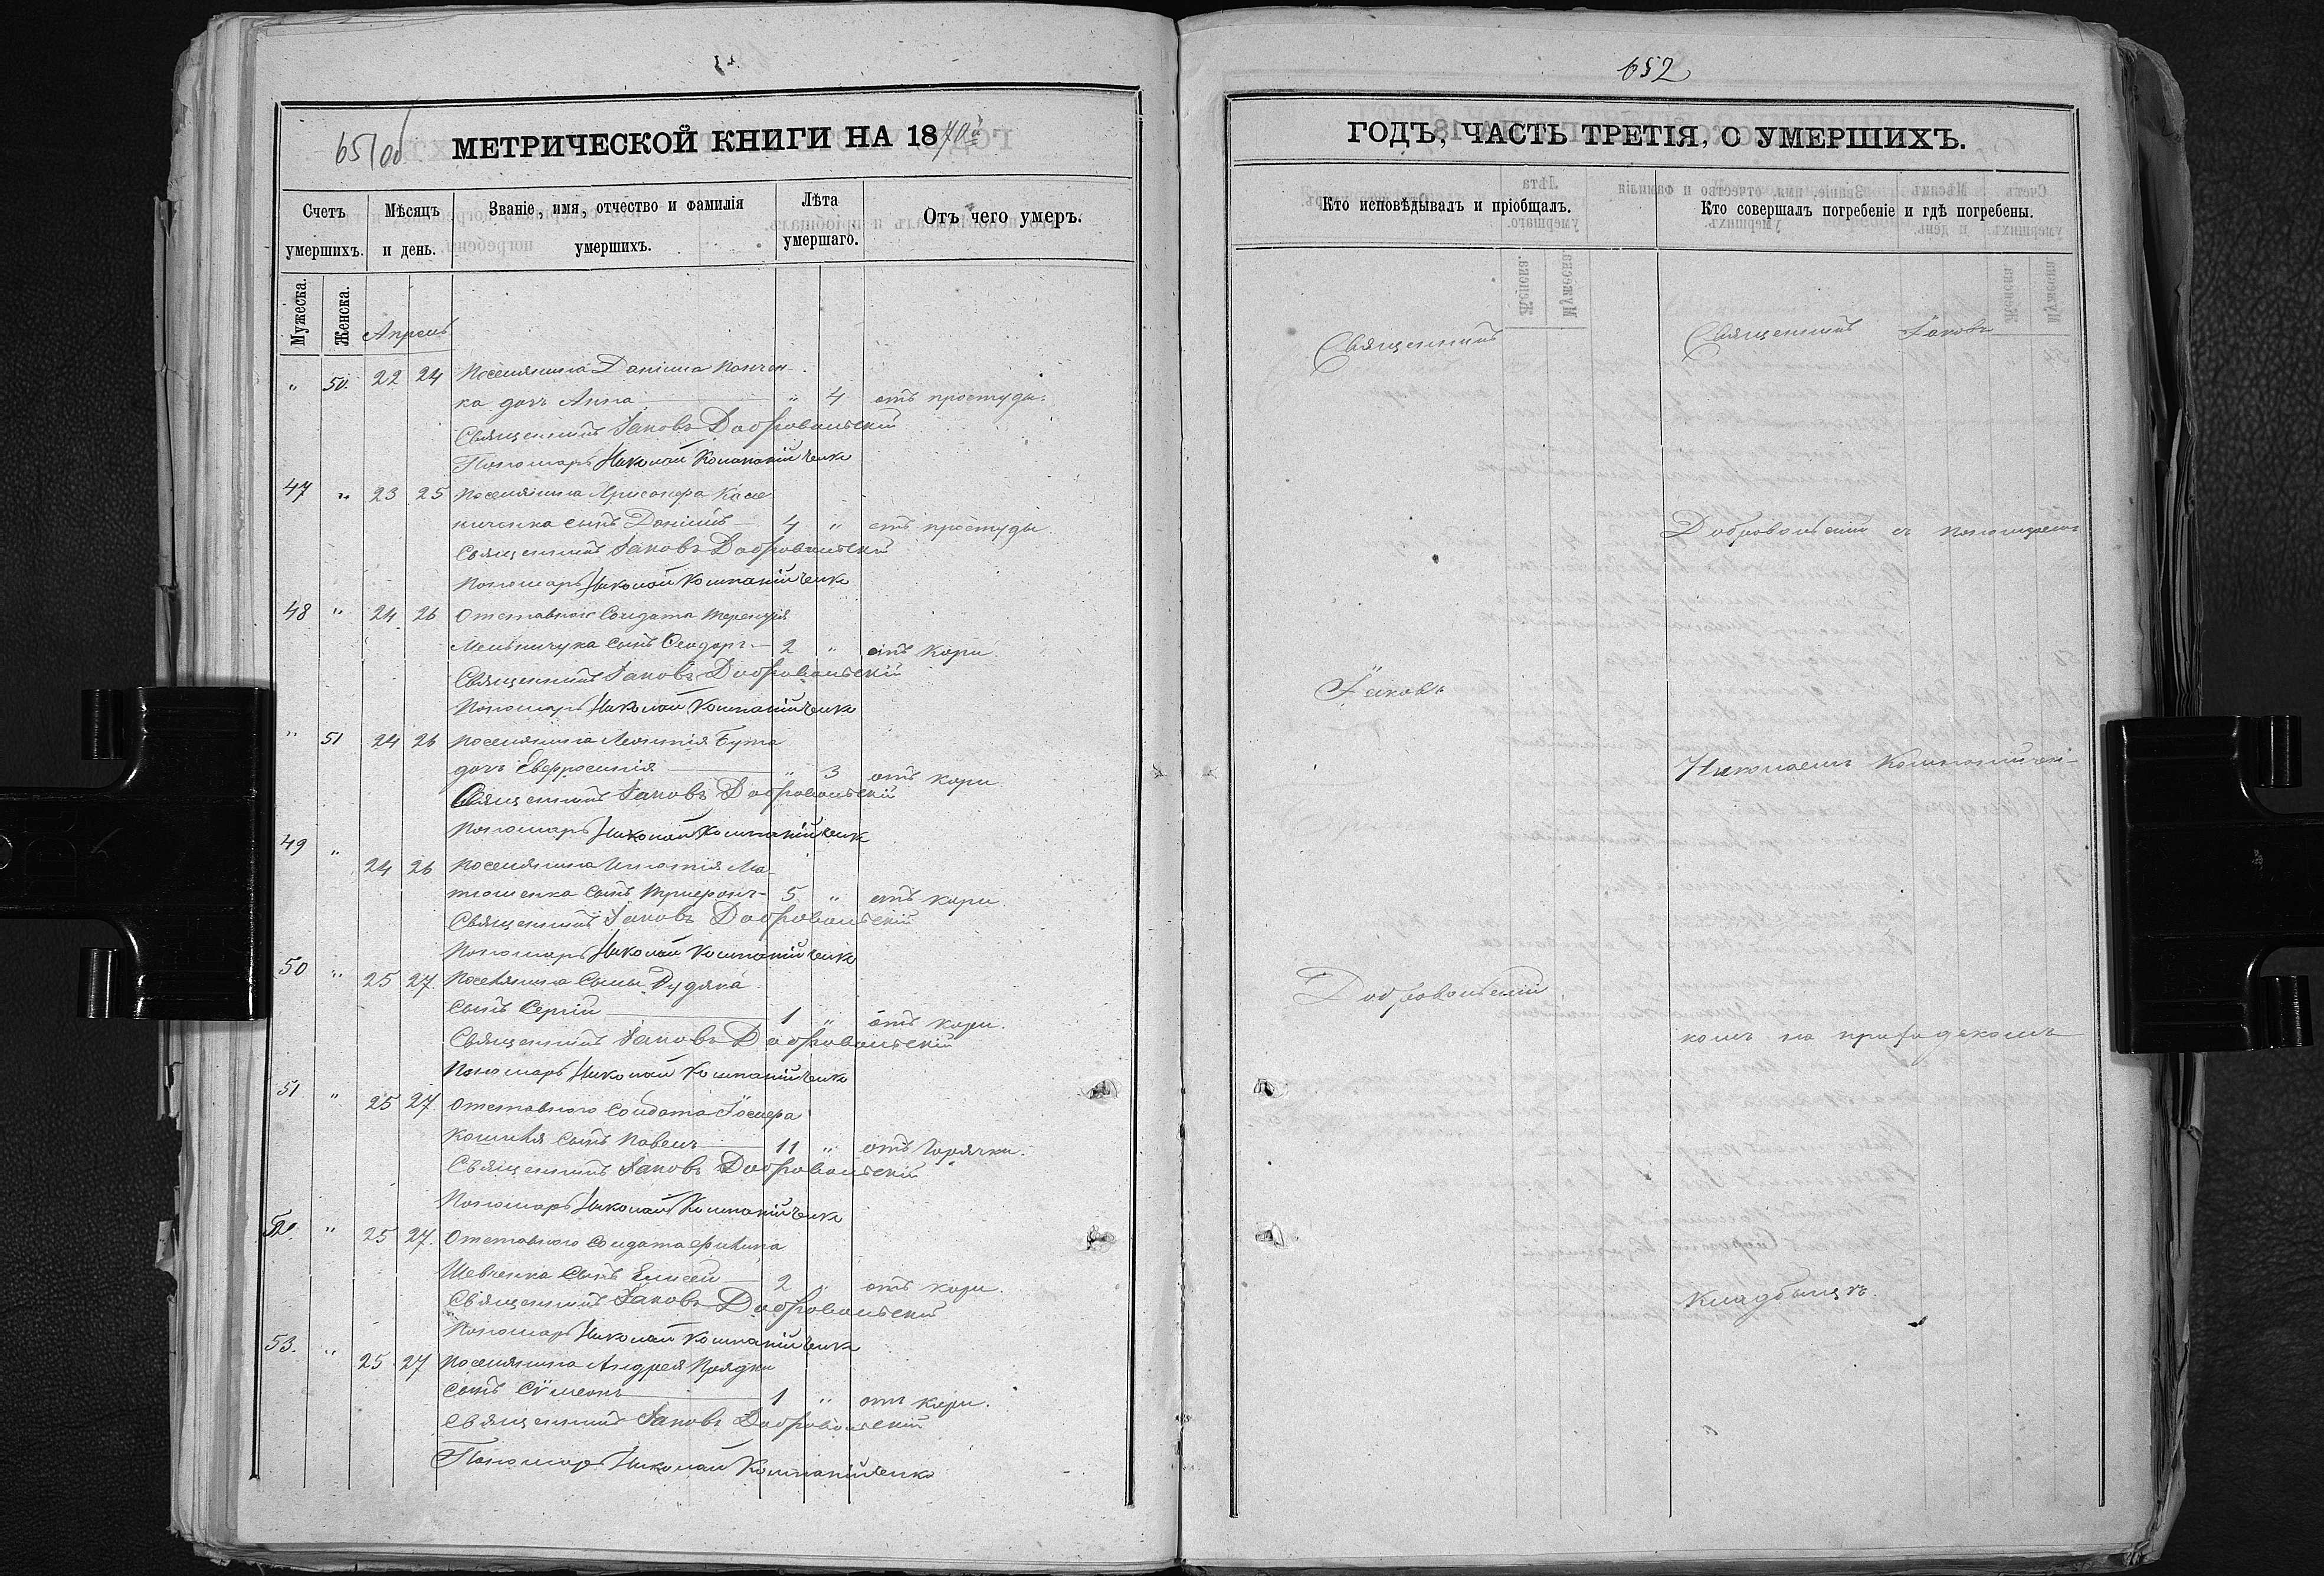 651об
МЕТРИЧЕСКОЙ КНИГИ НА 1870й
Счетъ умершихъ.
Мѣсяцъ и день.
Званіе, имя, отчество и фамилія умершихъ.
Лѣта умершаго.
Отъ чего умеръ.
Мужеска.
Женска.
Апрель
" 50. 22 24 Поселянина Даніила
ка дочь Анна " 4 отъ простуды.
Священникъ Іаковъ Добровольскій
Пономарь Николай Компанійченко
47 " 23 25 Поселянина
сынъ Даніилъ 4 " отъ простуды
Священникъ Іаковъ Добровольскій
Пономарь Николай Компанійченко
48 " 24 26 Отставного Солдата Терентія
Мельничука сынъ Ѳеодоръ 2 " отъ кори
Священникъ Іаковъ Добровольскій
Пономарь Николай Компанійченко
" 51 24 26 Поселянина Леонтія Бута
дочь Евфросинія " 3 отъ кори
Священникъ Іаковъ Добровольскій
Пономарь Николай Компанійченко
49 " 24 26 Поселянина Игнатія Ма-
тюшенка сынъ 5 " отъ кори
Священникъ Іаковъ Добровольскій
Пономарь Николай Компанійченко
50 " 25 27 Поселянина
сынъ Сергій 1 " отъ кори.
Священникъ Іаковъ Добровольскій
Пономарь Николай Компанійченко
51 " 25 27 Отставного Солдата
сынъ Павелъ 11 " отъ горячки.
Священникъ Іаковъ Добровольскій
Пономарь Николай Компанійченко
52. " 25 27. Отставного Солдата Филипа
Шевченка сынъ Елисей 2 " отъ кори.
Священникъ Іаковъ Добровольскій
Пономарь Николай Компанійченко
53. " 25 27 Поселянина Андрея
сынъ Сѵмеонъ 1 " отъ кори.
Священникъ Іаковъ Добровольскій
Пономарь Николай Компанійченко
652
ГОДЪ, ЧАСТЬ ТРЕТІЯ, О УМЕРШИХЪ.
Кто исповѣдывалъ и пріобщалъ.
Кто совершалъ погребеніе и гдѣ погребены.
Священникъ
Іаковъ
Добровольскій
Священникъ Іаковъ
Добровольскій съ пономаремъ
Николаемъ Компанійчен-
комъ на приходскомъ
кладбищѣ.